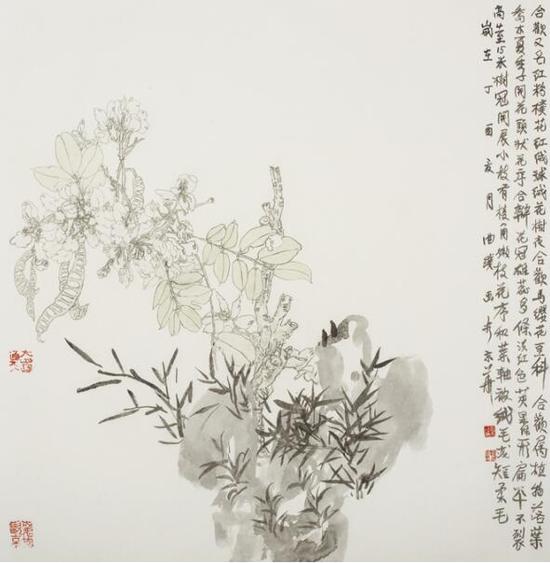 合歡又名红粉樸花红绒球绒花樹夜合歡马缨花豆科 合歡属植物落葉
喬木夏季開花頭狀花序合瓣花冠雄蕊多條淡红色荚果扁平不裂
高至15米樹冠開展小枝有棱角嫩枝花序和葉軸被绒毛或短柔毛
歲在丁酉亥月曲璞畫於京華